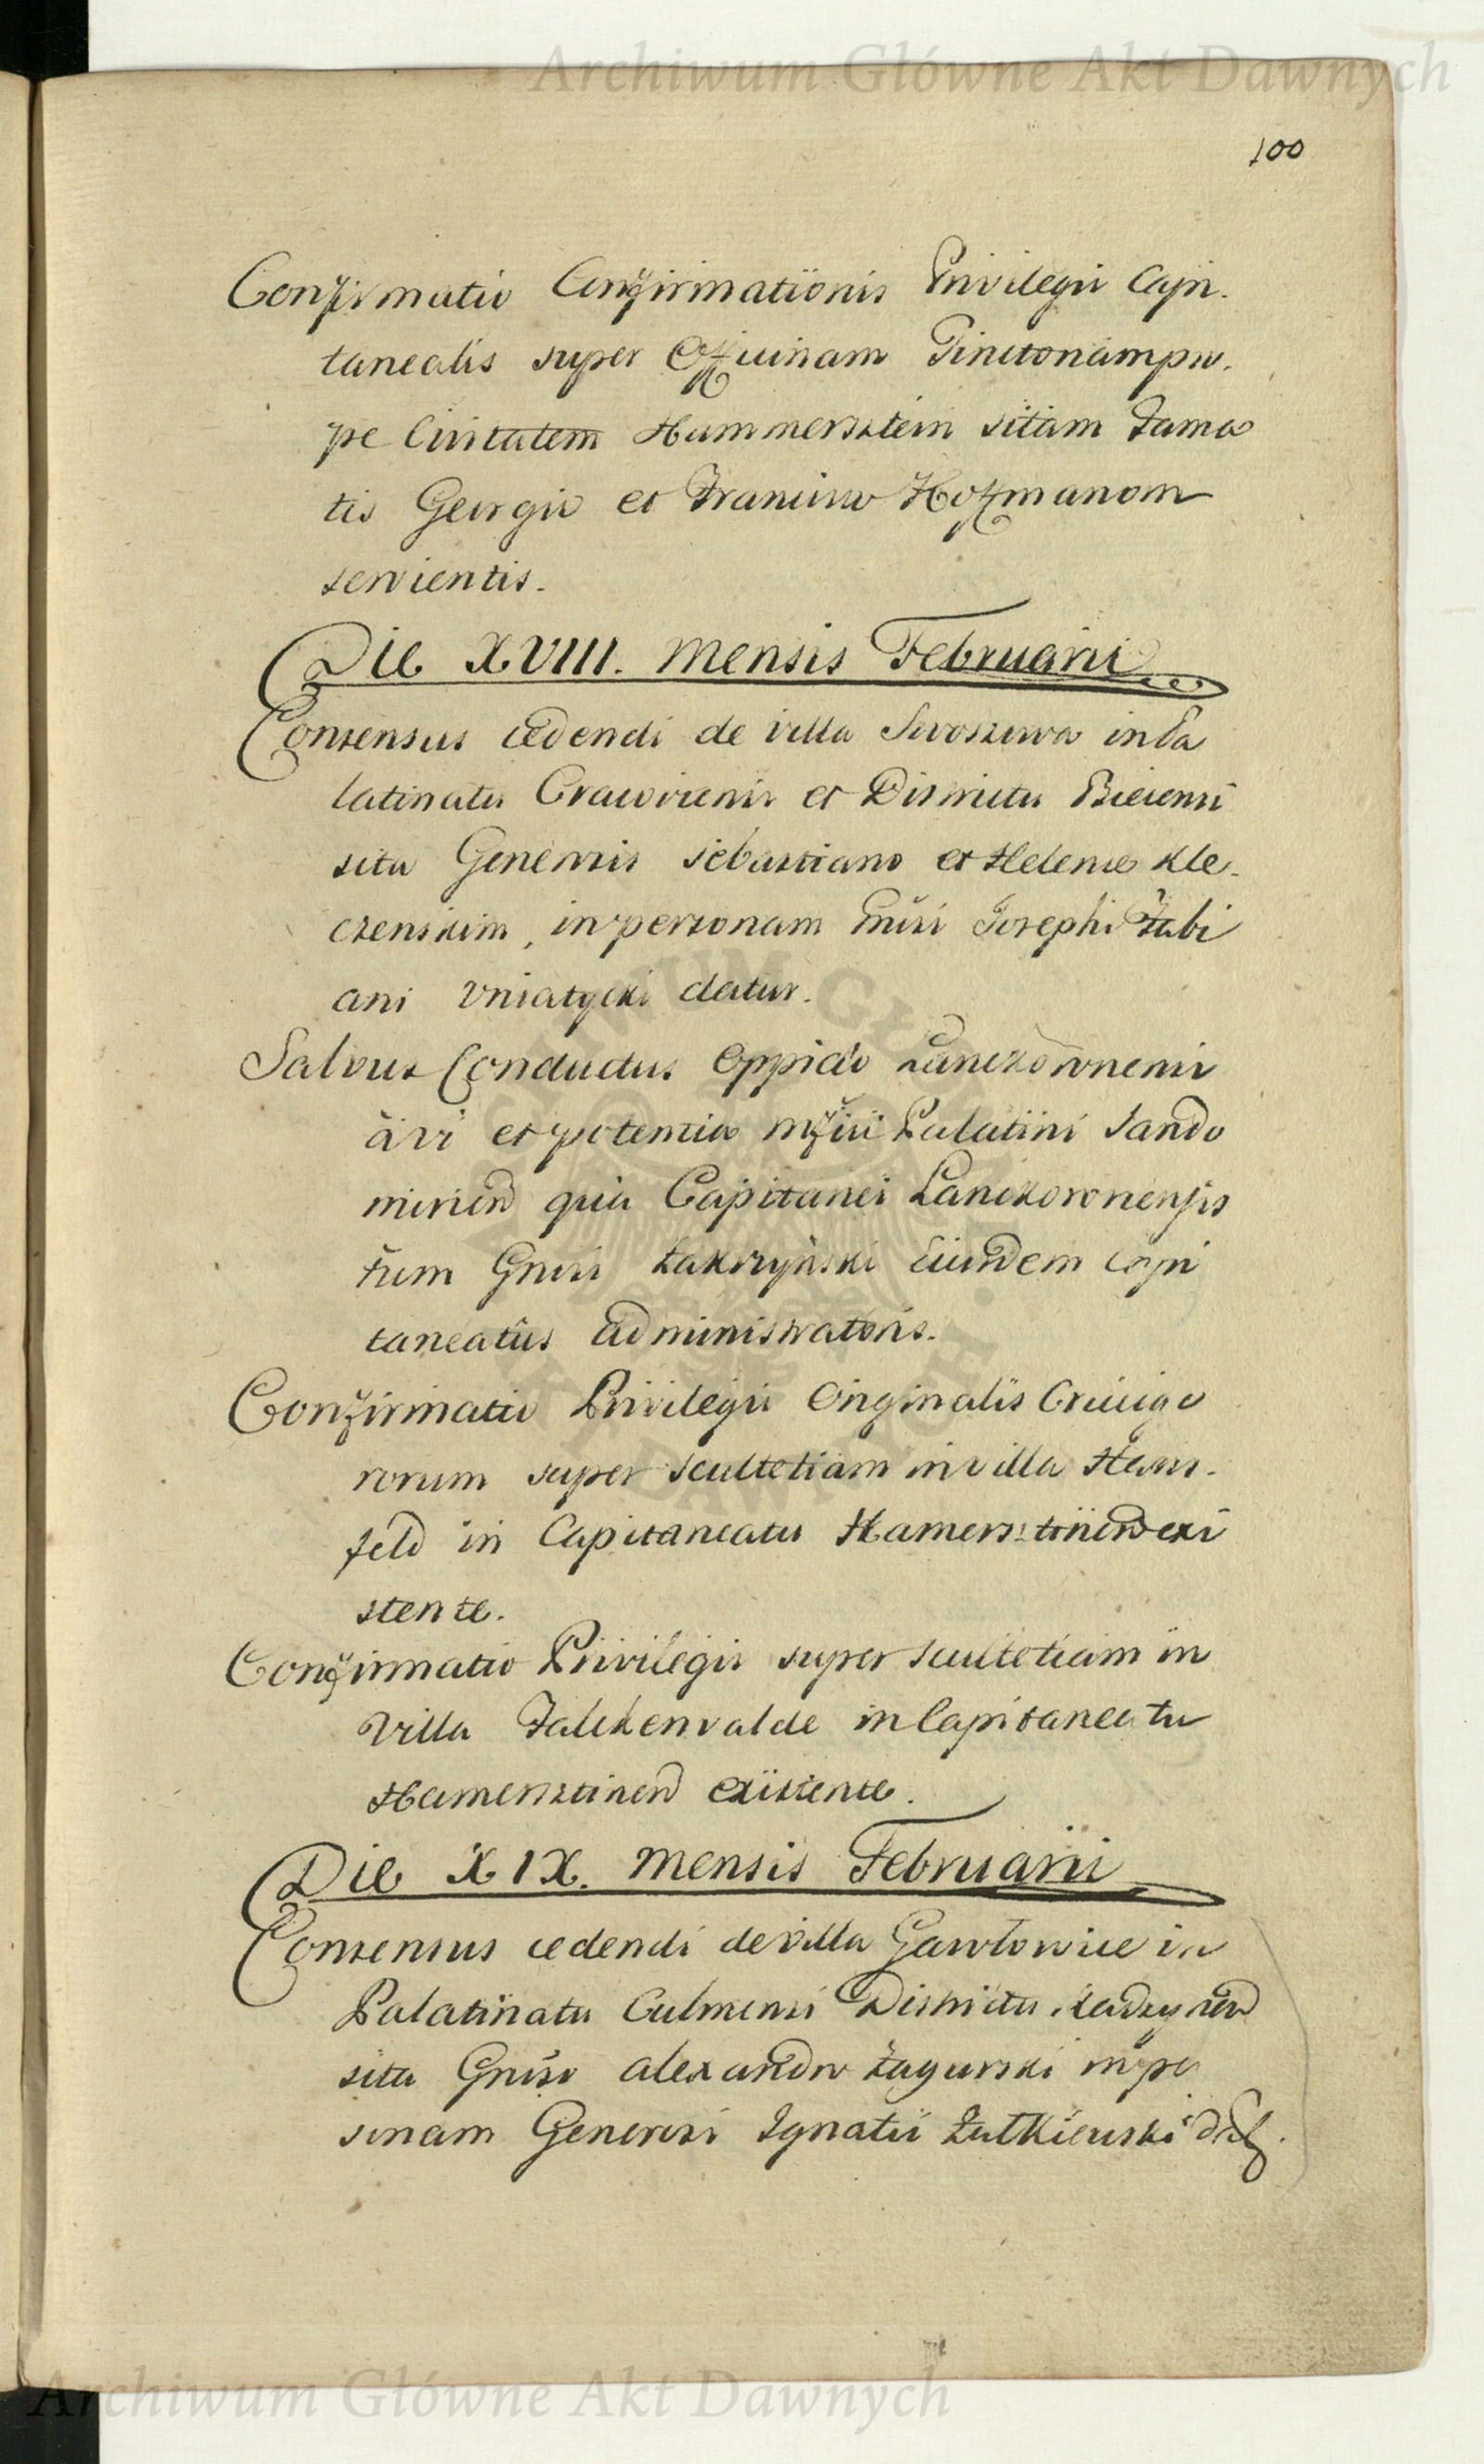 Archiwum Główne Akt Dawnych
100
Confirmatio Confirmationis Privilegii Capi-
tanealis super Officinam Tinctoriam pro-
pe Civitatem Hammersztein sitam Fama
tis Georgio et Francisco Hoffmanom
servientis.
Die XVIII. Mensis Februarii
Consensus cedendi de villa Siroszowa in Pa
latinatu Cracoviensi et Districtu Biecensi
sita Generosis Sebastiano et Helenæ Kle-
czenskim, in personam Gnīsi Josephi Fabi
ani Uniatycki datur.
Salvus Conductus Oppido Lanckoronensi
āvi et potentia Mgfici Palatini Sando
mirien qua Capitanei Lanckoronensis
tum Gnīsi Zakrzyński eiusdem Capi
taneatûs administratoris.
Confirmatio Privilegii Originalis Crucige
rorum super Scultetiam in villa Hans-
feld in Capitaneatu Hamersztinen exi
stente.
Confirmatio Privilegii super Scultetiam in
Villa Falckenvalde in Capitaneatu
Hamersztinen existente.
Die XIX. Mensis Februarii
Consensus cedendi de villa Gawłowice in
Palatinatu Culmensi Districtu Radzynen
sita Gnīso Alexandro Zagurski in per
sonam Generosi Ignatii Zutkiewski
Archiwum Główne Akt Dawnych